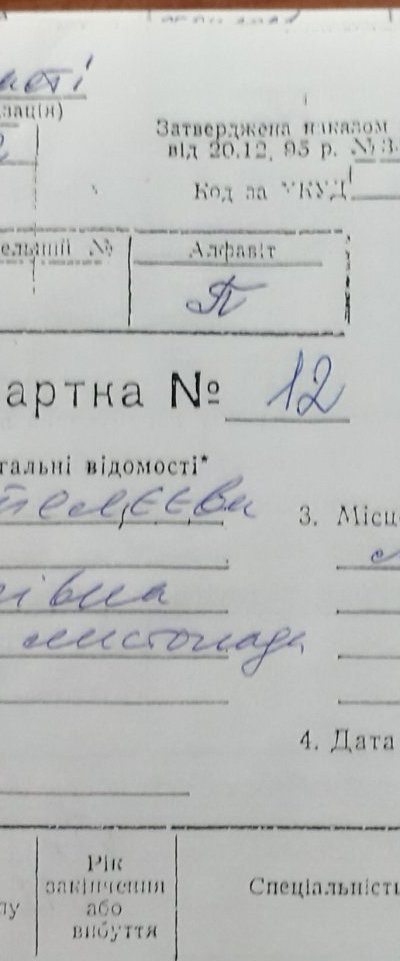 асті
зація)
Затверджена наказом
від 20.12. 95 р. № 3
Код за УКУД
ельний № Алфавіт
П
артка № 12
гальні відомості*
3. Місц
івна
листопада
4. Дата
Рік
закінчення
або
вибуття
лу
Спеціальність